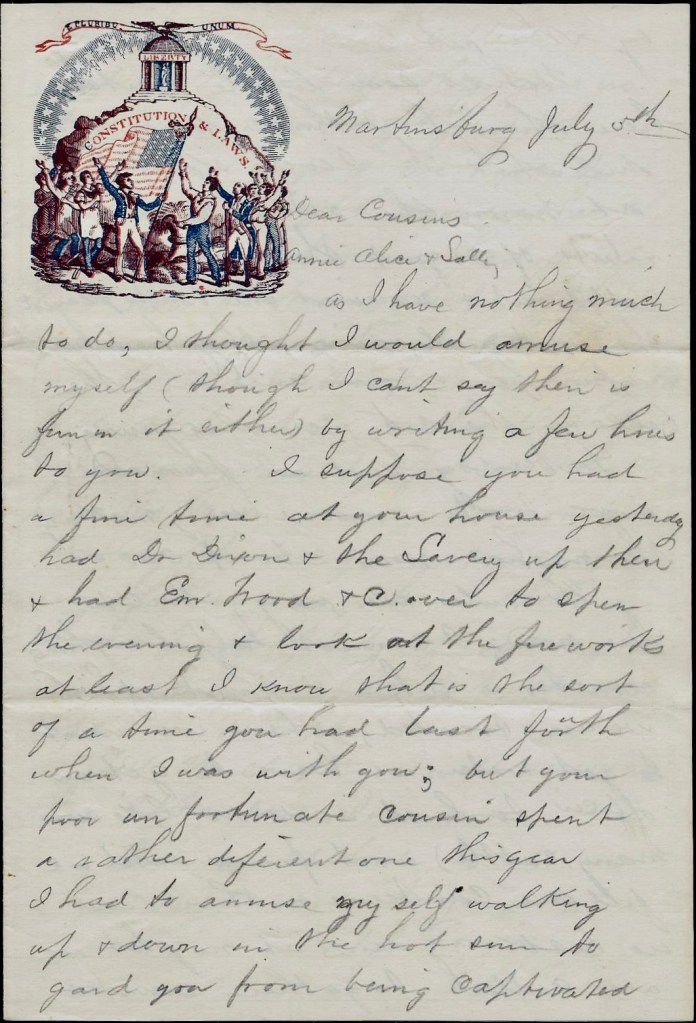 E PLURIBUS UNUM
LIBERTY
CONSTITUTION & LAWS
Martinsburg July 5th
Dear Cousins
Annie Alice & Sally
as I have nothing much
to do, I thought I would amuse
myself (though I can't say their is
fun in it either) by writing a few lines
to you. I suppose you had
a fine time at your house yesterday
had Dr Dixon & the Savery up their
& had Em. Wood & C. over to spen
the evening & look at the fireworks
at least I know that is the sort
of a time you had last forth
when I was with you; but your
poor un fortunate cousin spent
a rather diferent one this year
I had to amuse my self walking
up & down in the hot sun to
gard you from being Captivated